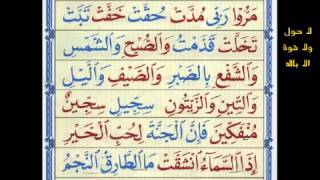 مَرُّوا رَبِّى مُدَّتْ حُقَّتْ خَفَّتْ تَبَّتْ
تَخَلَّتْ قَدَّمَتْ وَالصُّبْحِ وَالشَّمْسِ
وَالشَّفْعِ بِالصَّبْرِ وَالصَّيْفِ وَالَّيْلِ
وَالتِّينِ وَالزَّيْتُونِ سِجِّيلٍ سِجِّينٌ
مُنْفَكِّينَ فَإِنَّ الْجَنَّةَ لِحُبِّ الْخَيْرِ
إِذَا السَّمَآءُ انْشَقَّتْ مَا الطَّارِقُ النَّجْمُ
لا حول
ولا قوة
الا بالله